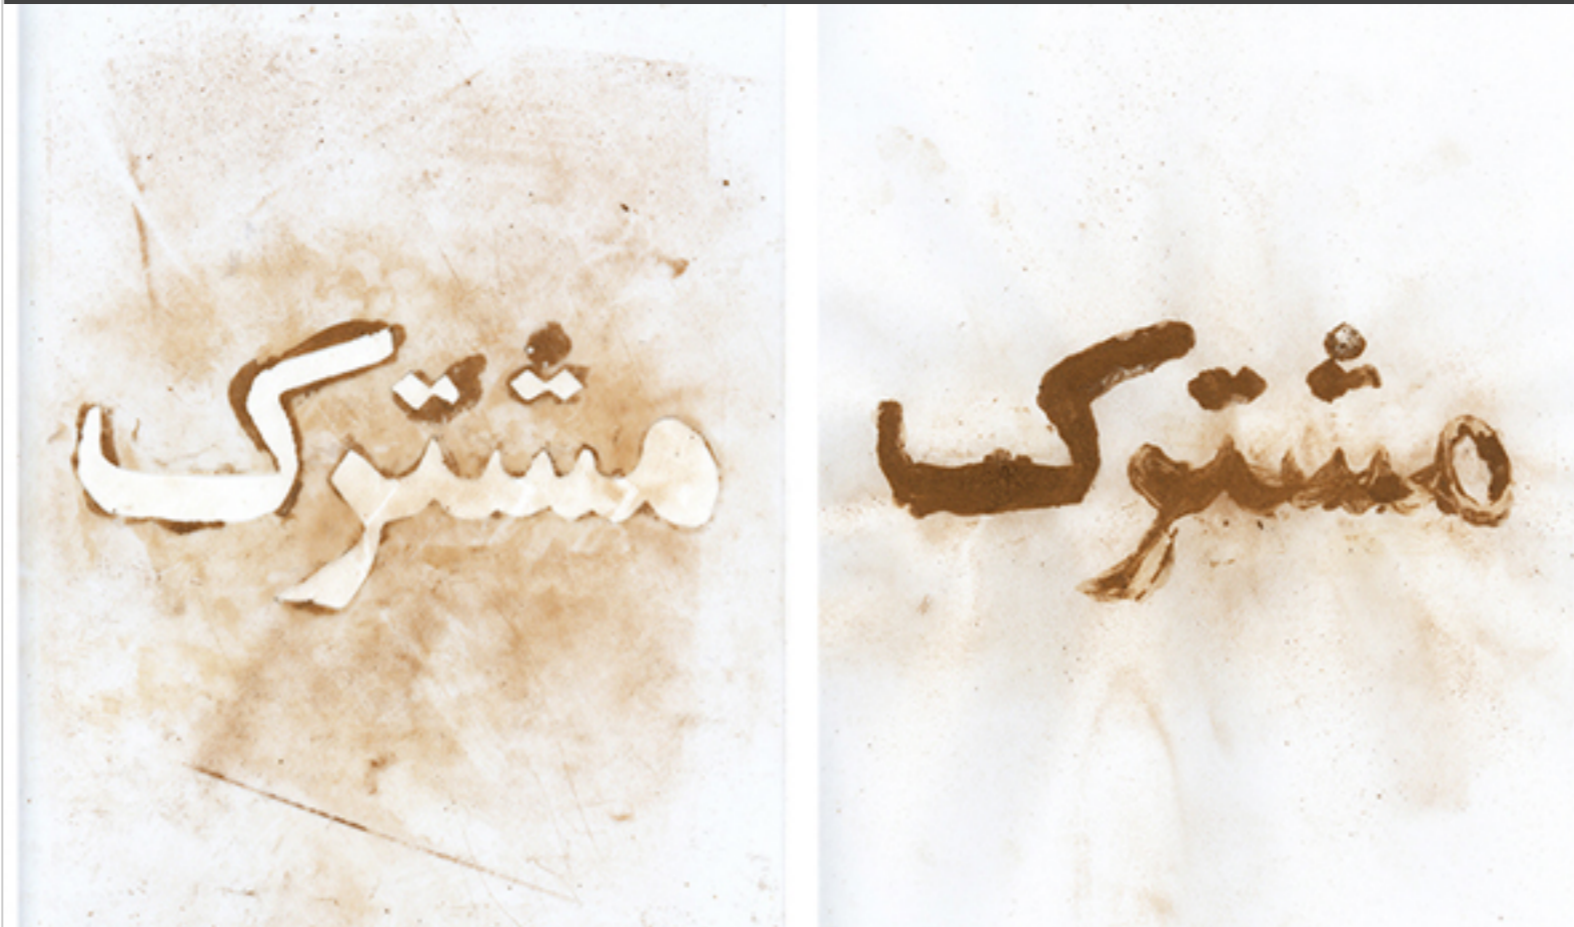 مشترک
مشترک